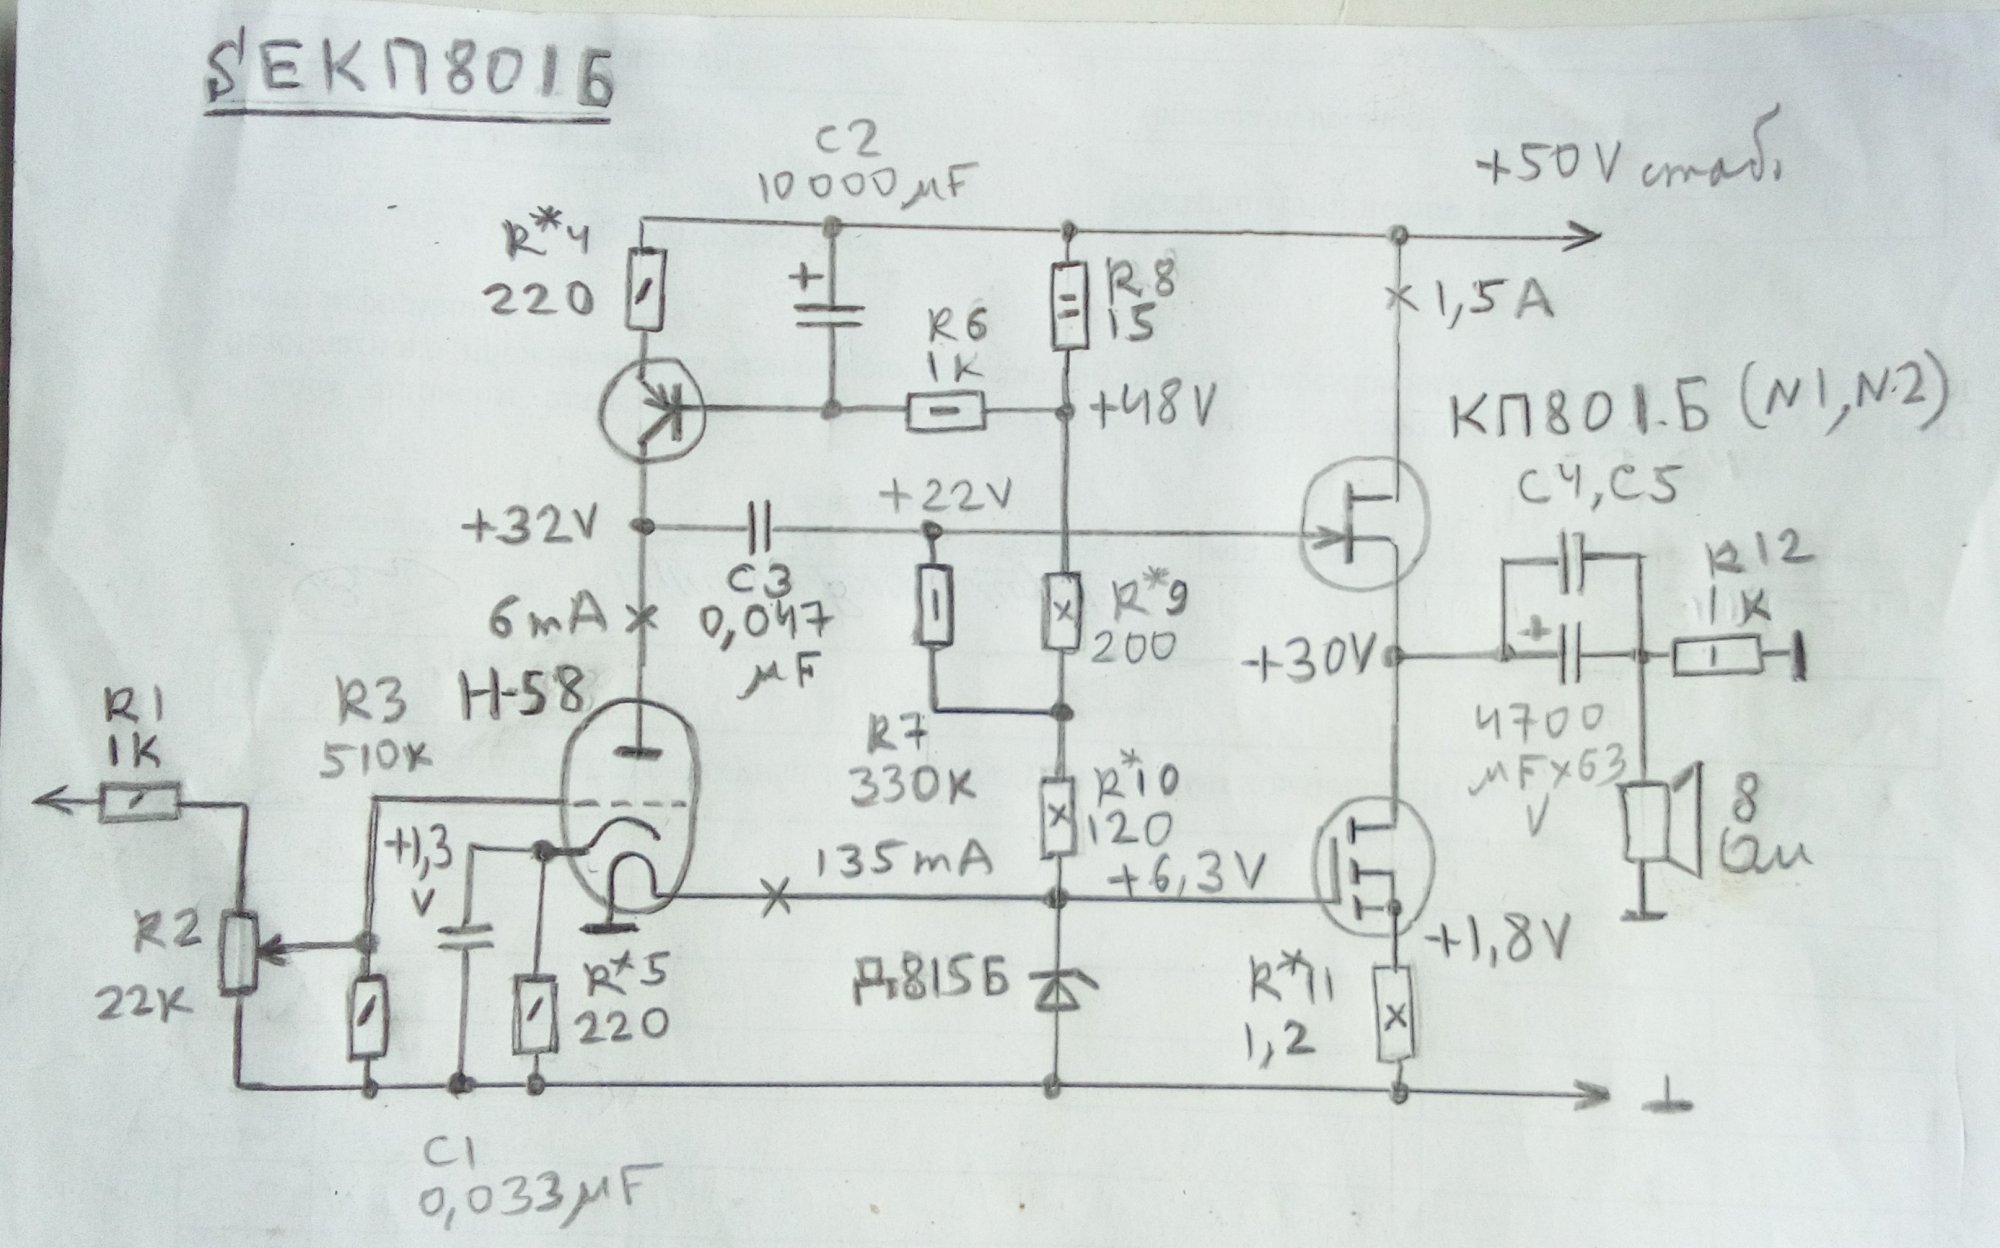 SEКП801Б
C2
10000μF
+50V стаб.
R*4
220
+
R8
15
1,5A
R6
1K
+48V
КП801Б (N1,N2)
C4,C5
+32V
+22V
C3
0,047
μF
R*9
200
R12
1K
6mA
+30V
+
H-58
R1
1K
R3
510K
4700
μFx63
V
R7
330K
R*10
120
8
Ом
+1,3
V
135mA
+6,3V
R2
22K
+1,8V
R*5
220
Д815Б
R*11
1,2
C1
0,033μF